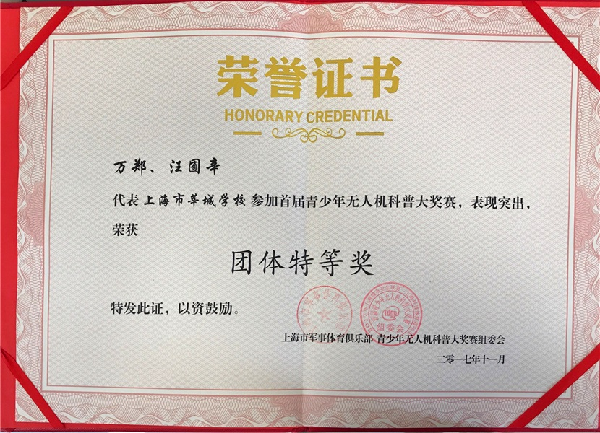 荣誉证书
HONORARY CREDENTIAL
万郑、汪圄辛
代表上海市娄城学校参加首届青少年无人机科普大奖赛，表现突出，
荣获
团体特等奖
特发此证，以资鼓励。
上海市军事体育俱乐部 青少年无人机科普大奖赛组委会
二〇一七年十一月